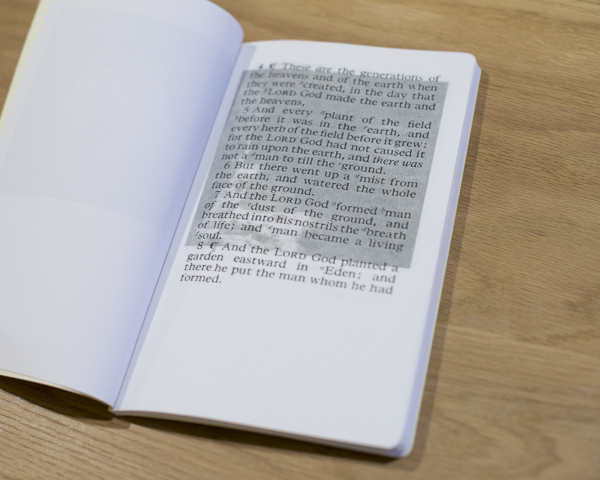 4 ¶ These are the generations of
the heavens and of the earth when
they were created, in the day that
the LORD God made the earth and
the heavens,
5 And every plant of the field
before it was in the earth, and
every herb of the field before it grew:
for the LORD God had not caused it
to rain upon the earth, and there was
not a man to till the ground.
6 But there went up a mist from
the earth, and watered the whole
face of the ground.
7 And the LORD God formed man
of the dust of the ground, and
breathed into his nostrils the breath
of life; and man became a living
soul.
8 ¶ And the LORD God planted a
garden eastward in Eden; and
there he put the man whom he had
formed.